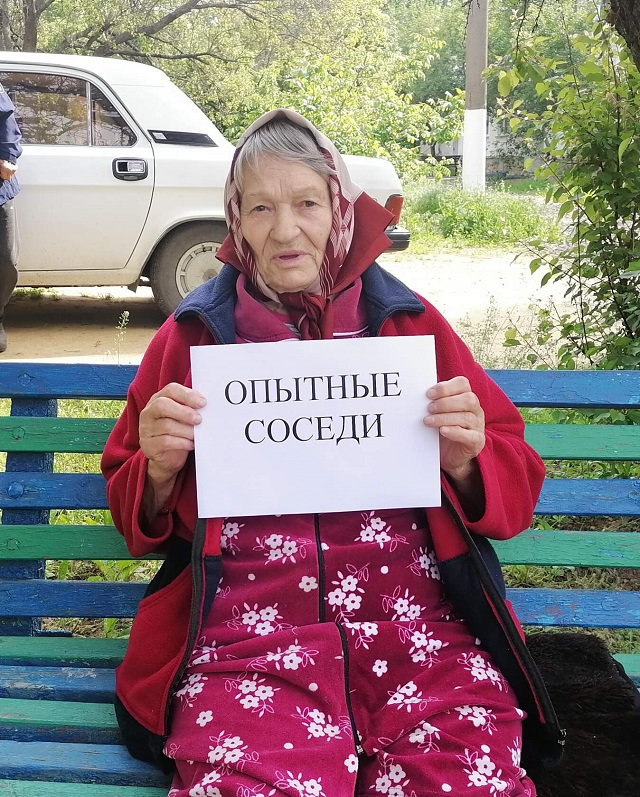 ОПЫТНЫЕ
СОСЕДИ